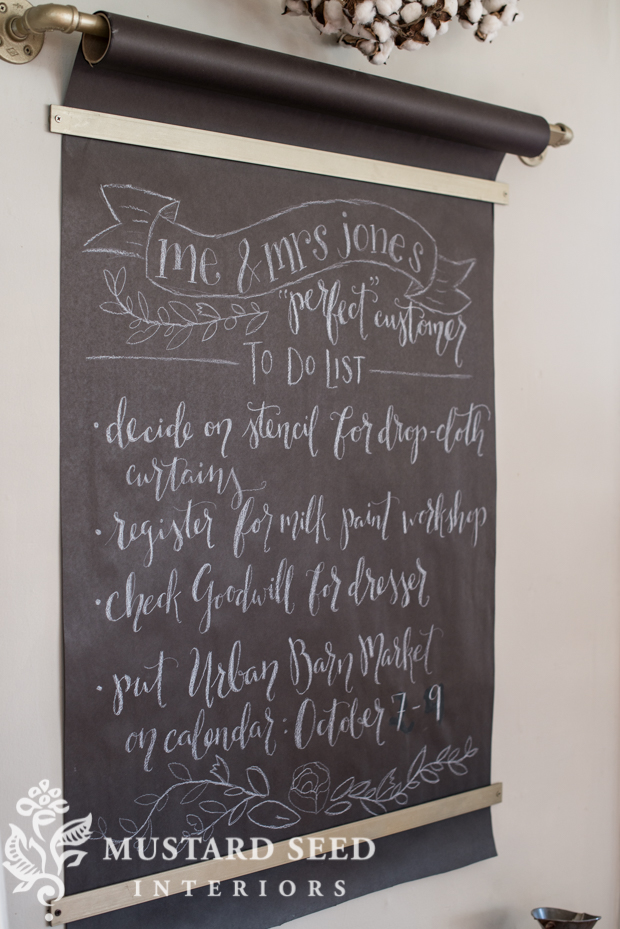 me & mrs jones
"perfect" customer
To Do List
• decide on stencil for drop-cloth
curtains
• register for milk paint workshop
• check Goodwill for dresser
• put Urban Barn Market
on calendar: October 7-9
MUSTARD SEED
INTERIORS